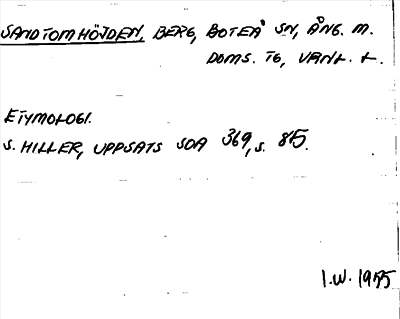 SANDTOMHÖJDEN, BERG, BOTEÅ SN, ÅNG. M.
DOMS. TG, VÄNL. L.
ETYMOLOGI.
S. HILLER, UPPSATS SOA 369, s. 85.
I.W. 1975